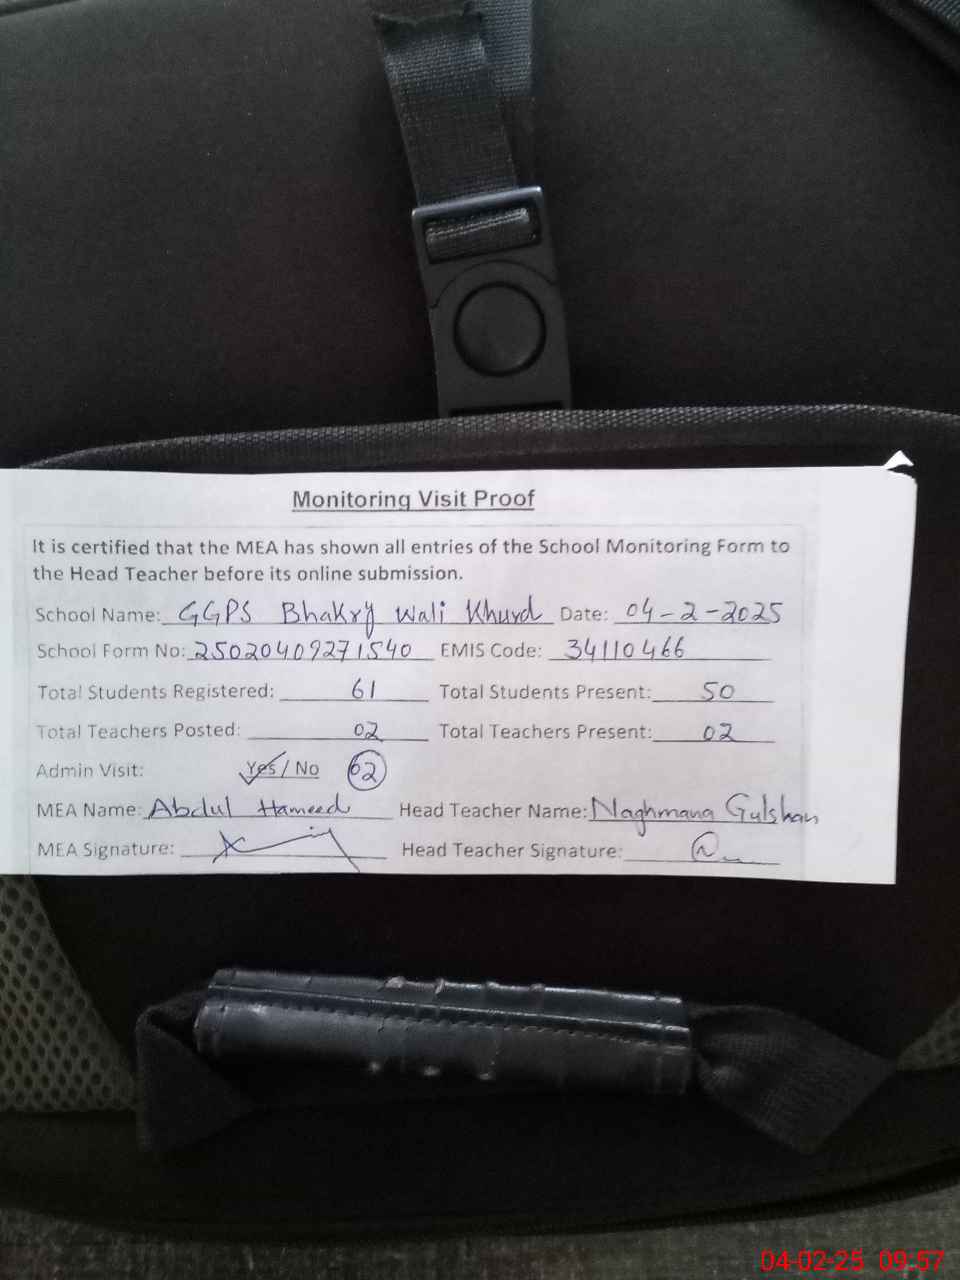 Monitoring Visit Proof
It is certified that the MEA has shown all entries of the School Monitoring Form to
the Head Teacher before its online submission.
School Name: GGPS Bhakry Wali Khurd Date: 04-2-2025
School Form No: 25020409271540 EMIS Code: 34110466
Total Students Registered: 61 Total Students Present: 50
Total Teachers Posted: 02 Total Teachers Present: 02
Admin Visit: Yes / No 02
MEA Name: Abdul Hameed Head Teacher Name: Naghmana Gulshan
MEA Signature: Head Teacher Signature:
04-02-25 09:57